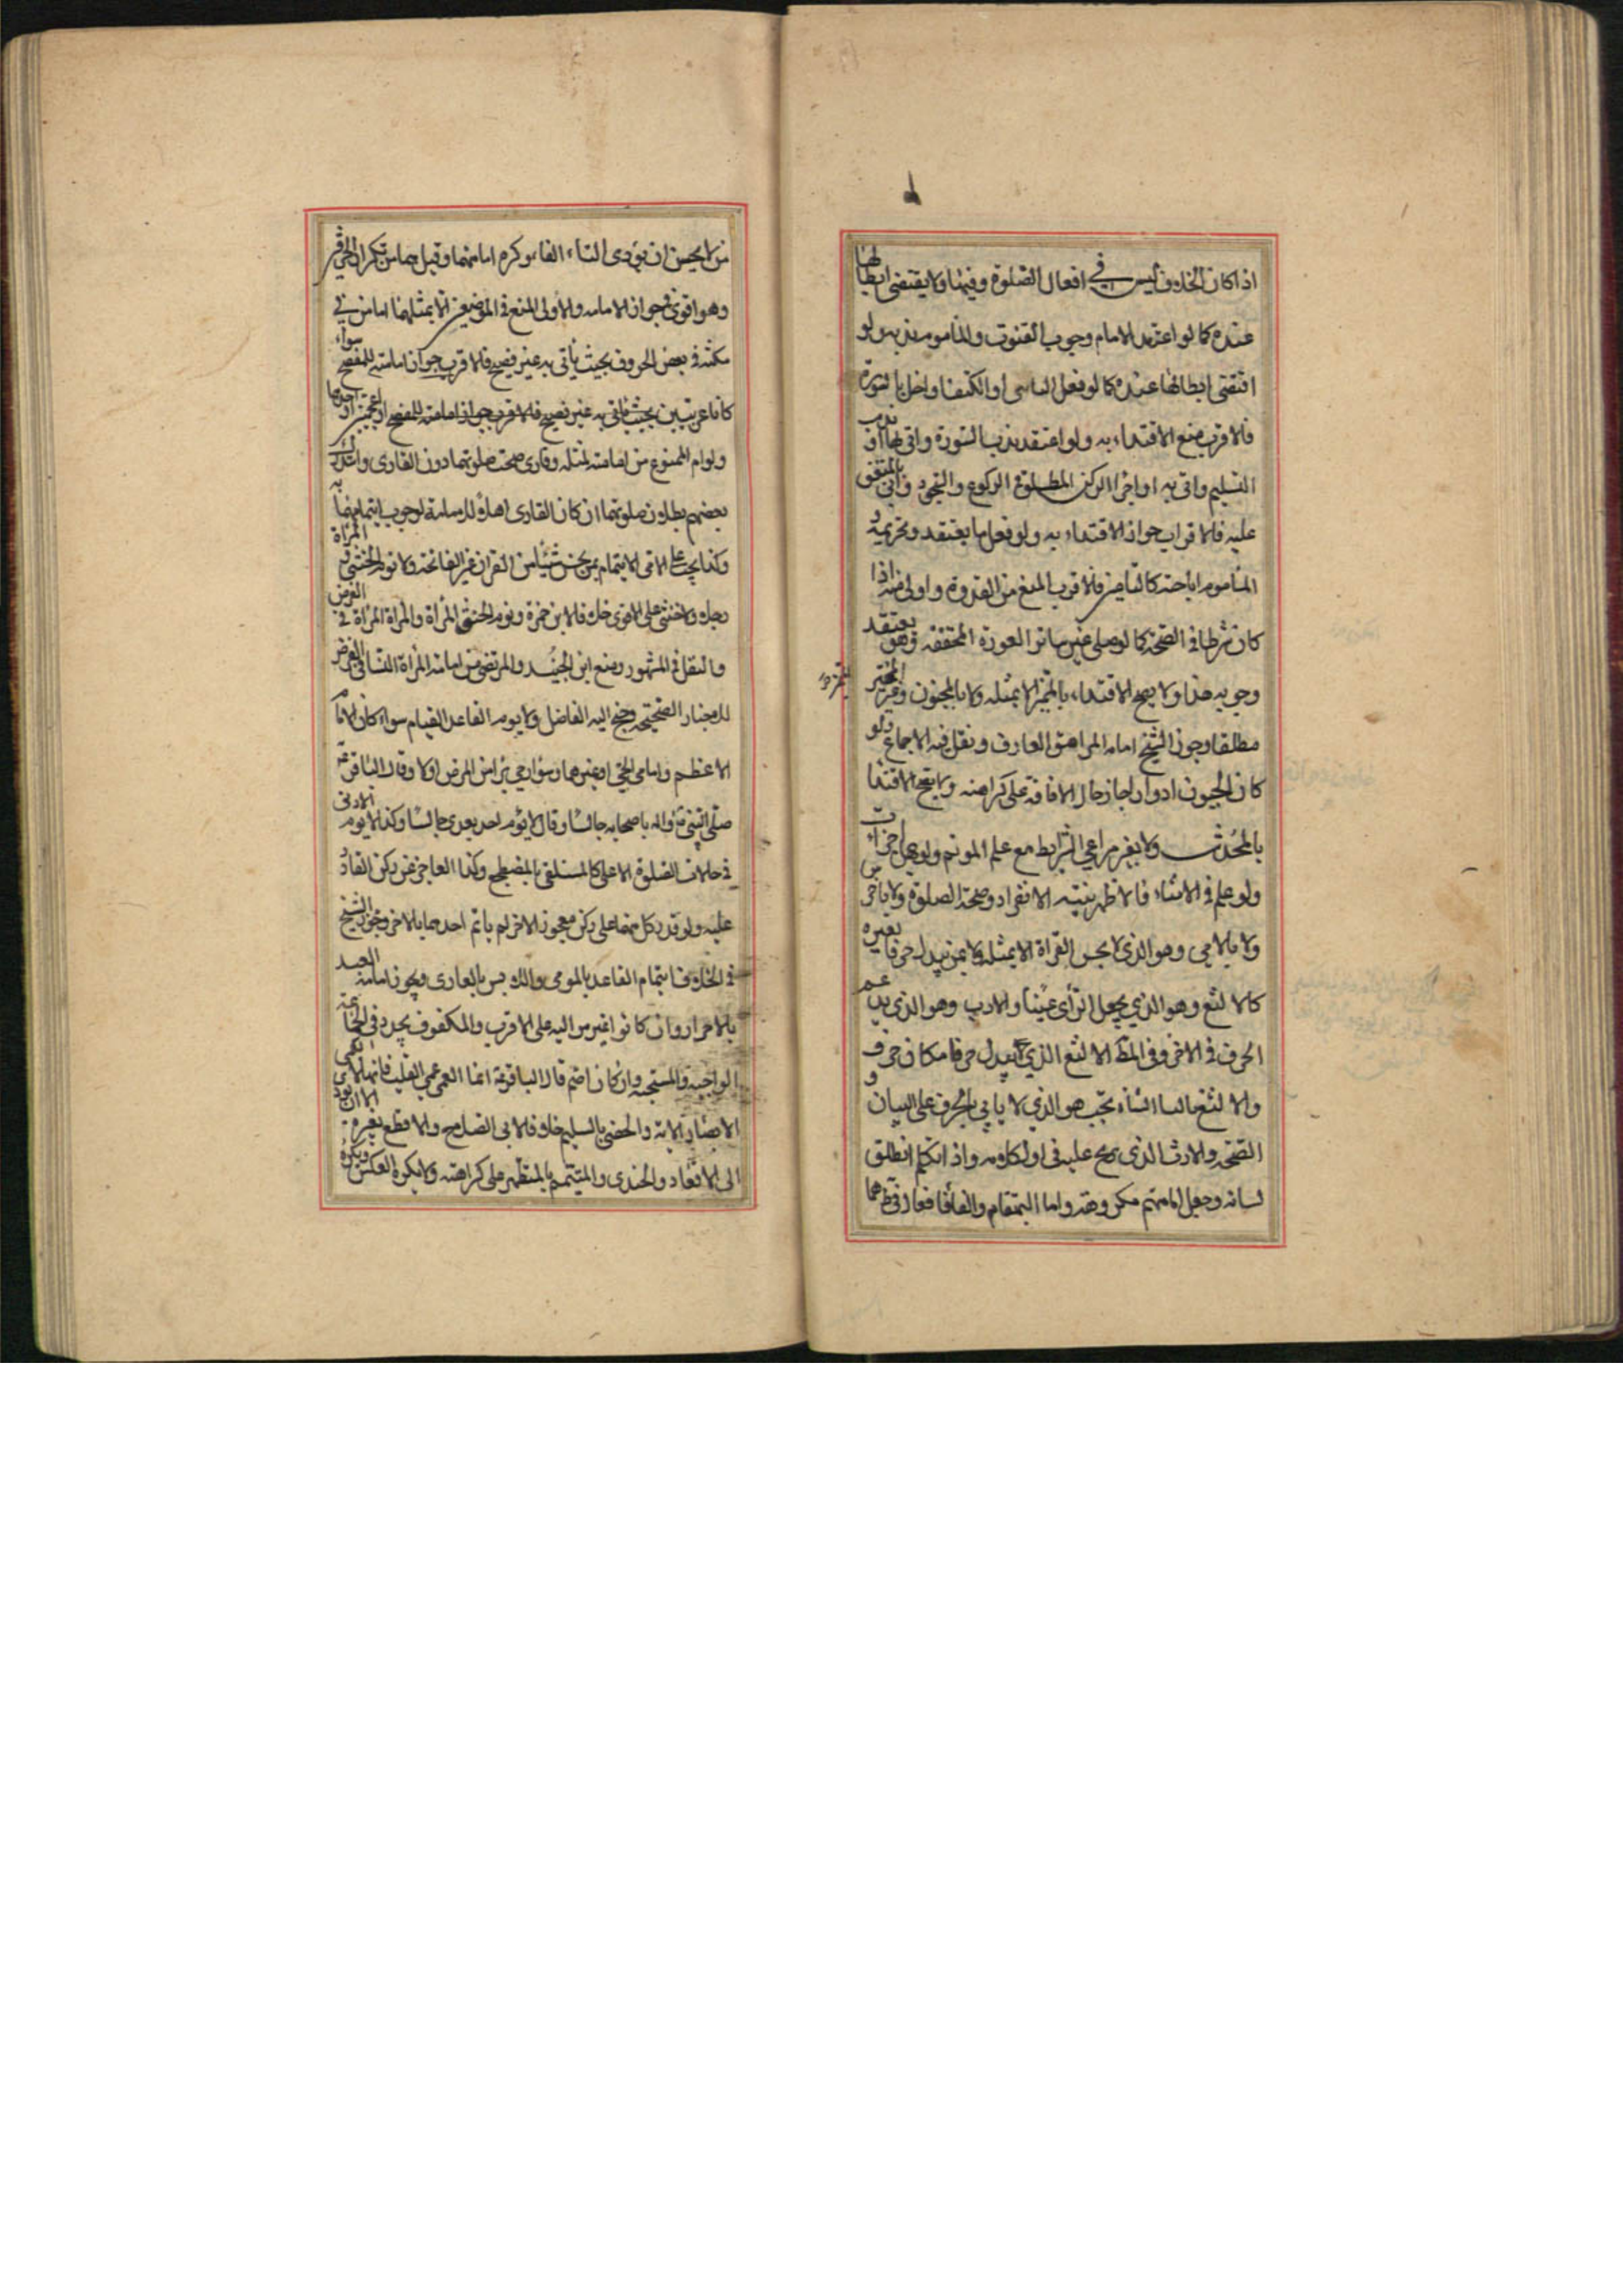 اذا كان الخلاف ليس في افعال الصلوة وفيها ولا يقتضى ابطالها
عنده كما لو اعتقد الامام وجوب القنوت والماموم ندبه ولو
اقتضى ابطالها عنده كما لو فعل الناسى او الكتف او اخل بالسورة
فالاقرب منع الاقتداء به ولو اعتقد ندب السورة واتى بها او ندب
التسليم واتى به او اجزاء الركن المطلوق الركوع والسجود واتى بالمتفق
عليه فالاقراب جواز الاقتداء به ولو فعل ما يعتقد وتحريمه
الماموم اباحته كالتامين فالاقرب المنع من القدوة واولى منه اذا
كان شرطا في الصحة كما لو صلى غير ساتر العورة المخففة وهو يعتقد
وجوبه هذا ولا يصح الاقتداء بالمميز الا بمثله ولا بالمجنون وغير المميز
مطلقا وجوز الشيخ امامة المراهق العارف ونقل فيه الاجماع ولو
كان الجنون ادوارا جاز حال الافاقة على كراهته ولا يصح الاقتدا
بالمحدث ولا بغير مراعي الشرايط مع علم الموتم ولو جهل اجزات
ولو علم في الاثناء فالاظهر نيته الانفراد وصحة الصلوة ولا باخرس
ولا بالامي وهو الذي لا يحسن القراة الا بمثله ولا بمن يبدل حرفا بغيره
كالالثغ وهو الذي يجعل الرأى غينا والارت وهو الذي يدغم
الحرف في الاخر وفي المط الالثغ الذي يبدل حرفا مكان حرف
والالثغ بالياء الثناء تحت هو الذي لا ياتي بالحرف على البيان و
الصحة والارت الذى يرتج عليه في اول كلامه واذا تكلم انطلق
لسانه وجعل امامتهم مكروهة واما التمتام والفافا فعارفتهما
من لا يحسن ان يودى التاء الفاء وكره امامتهما وقيل هما من تكرار الحرفين
وهو اقوى في جواز الامامة والاولى المنع في الموضعين الا بمثلهما امامن في
مكثه في بعض الحروف بحيث ياتى به غير فصيح فالاقرب جواز امامته للمفصح سواء
كانا عربيين بحيث ياتى به غير فصيح فالاقرب جواز امامته للمفصح او عجميين او احدهما
ولو ام الممنوع من امامته لمثله وقارى صحت صلوتهما دون القارى
بعضهم بطلان صلوتهما ان كان القارى اهلا للامامة لوجوب ايتمامهما به
وكذا يجب على الامى الايتمام بمن يحسن شيئا من القران غير الفاتحة ولا توم الخنثى المرأة
رجلا ولا خنثى على الاقوى خلافا لابن حمزة ويوم الخنثى المرأة والمرأة المرأة في الفرض
والنفل في المشهور ومنع ابن الجنيد والمرتضى من امامة المرأة النساء في الفرض
للاخبار الصحيحة وجنح اليه الفاضل ولا يوم القاعد القيام سواء كان الامام
الاعظم وامامى الحي او غيرهما وسواء رجى برأه من المرض اولا وقال الباقر
صلى النبي واله باصحابه جالسا وقال لا يؤم احد بعدى جالسا وكذا لا يوم الادنى
في حالات الصلوة الاعلى كالمستلقى بالمضطجع وكذا العاجز عن ركن القادر
عليه ولو قدر كل منهما على ركن معجوز الاخر لم ياتم احدهما بالاخر وجوز الشيخ
في الخلاف ايتمام القاعد بالمومى واللابس بالعارى ويجوز امامة العبد
بالاحرار وان كانوا غير مواليه على الاقرب والمكفوف يجرد في الجماعة
الواجبة والمستحبة وان كان اصم قال الباقر انما العمى عمى القلب فانها لا تعمى
الابصار الاية والخصى بالسليم خلافا لابى الصلاح والاقطع بغيره الا ان يؤد
الى الاقعاد والجندى والمتيمم بالمتطهر على كراهته ولا يكره العكس ويكره